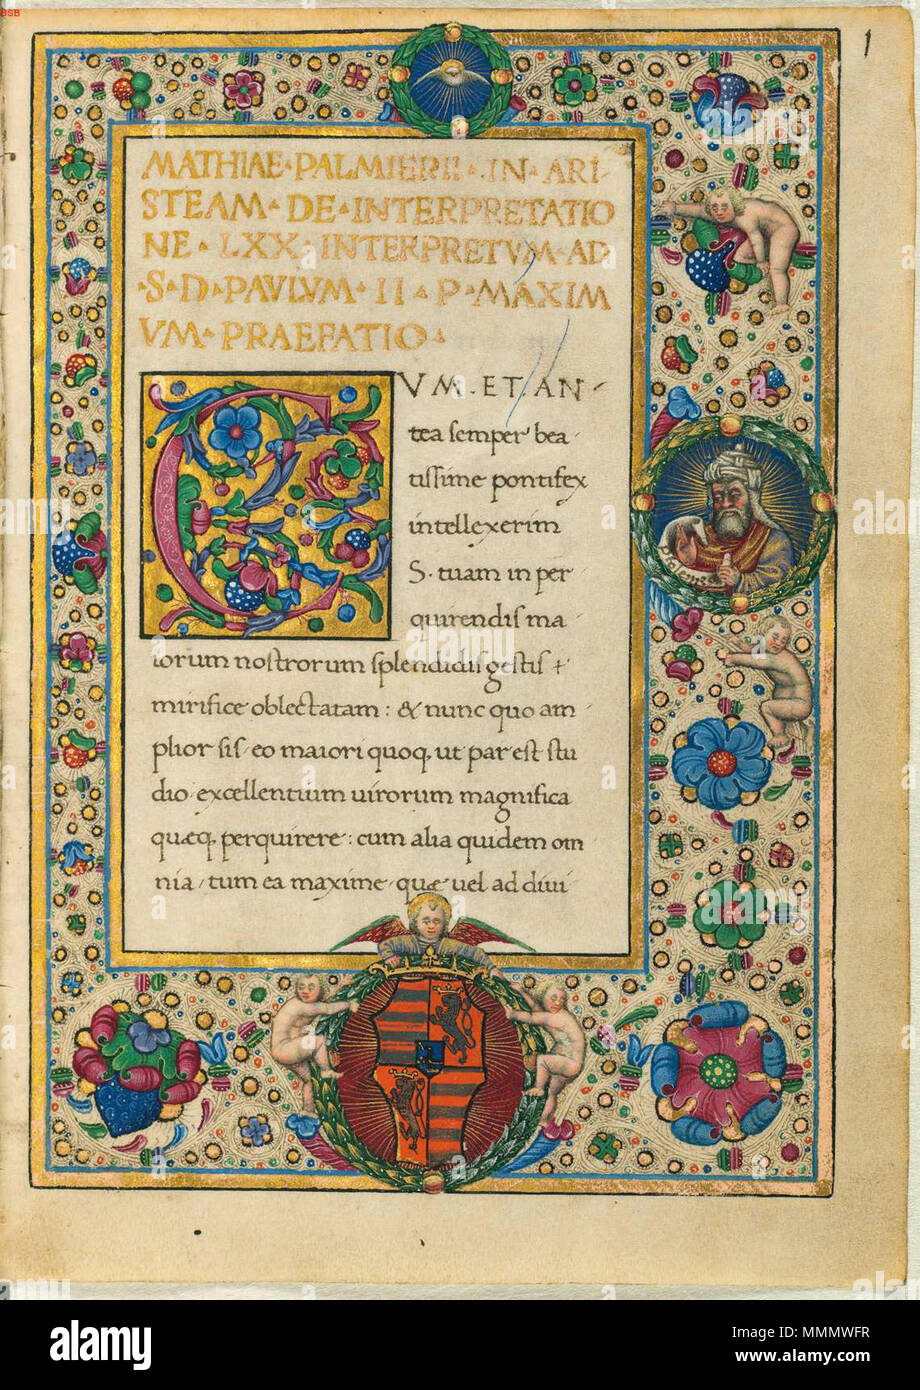 BSB
1
MATHIAE · PALMIERII · IN · ARI
STEAM · DE · INTERPRETATIO
NE · LXX · INTERPRETVM · AD
· S · D · PAVLVM · II · P · MAXIM
VM · PRAEFATIO ·
CVM . ET . AN
tea semper bea
tissime pontifex
intellexerim
S. tuam in per
quirendis ma
iorum nostrorum splendidis gestis +
mirifice oblectatam: & nunc quo am
plior sis eo maiori quoq, ut par est stu
dio excellentium uirorum magnifica
quæq, perquirere: cum alia quidem om
nia / tum ea maxime quæ uel ad diui
alamy
Image ID: MMMWFR
www.alamy.com